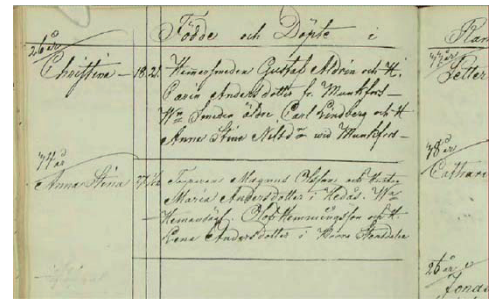 Födde och Döpte i
26 år
Christine – 18. 21. Hammarsmeden Gustaf Aldrin och H.
Caria Andersdotter fr. Munkfors –
Wn Smeden äldre Carl Lindberg och H
Anna Stina Nilsdr wid Munkfors –
Anna Stina Magnus Olsson och Hustru
Maria Andersdotter i Hedås. Wn
Hemmansäg. Olof Hemmingsson och H
Lena Andersdotter i Norra
Petter
38 år
Cathari
26 år
Jonas